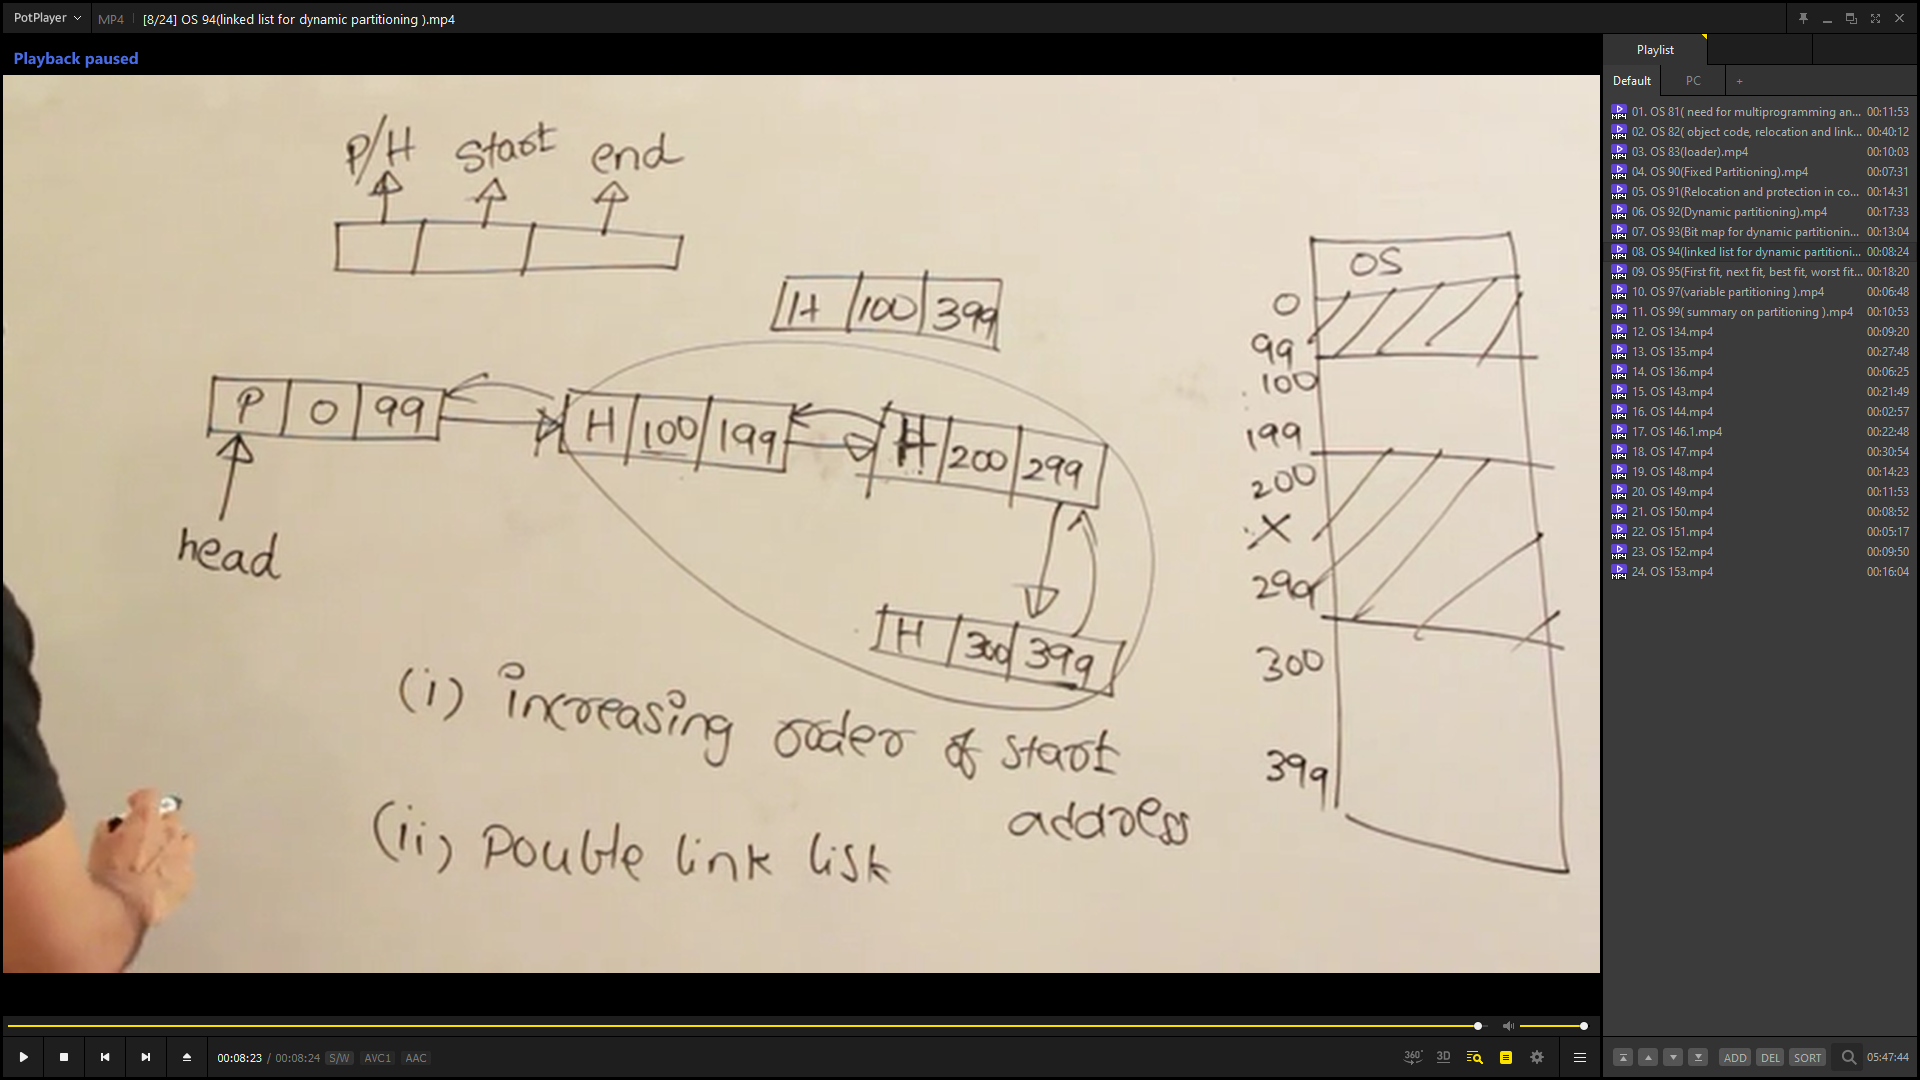 PotPlayer
MP4
[8/24] OS 94(linked list for dynamic partitioning ).mp4
Playback paused
P/H start end
H 100 399
P 0 99
H 100 199
H 200 299
H 300 399
head
(i) increasing order of start
address
(ii) Double link list
OS
0
99
100
199
200
X
299
300
399
Playlist
Default PC +
01. OS 81( need for multiprogramming an... 00:11:53
02. OS 82( object code, relocation and link... 00:40:12
03. OS 83(loader).mp4 00:10:03
04. OS 90(Fixed Partitioning).mp4 00:07:31
05. OS 91(Relocation and protection in co... 00:14:31
06. OS 92(Dynamic partitioning).mp4 00:17:33
07. OS 93(Bit map for dynamic partitionin... 00:13:04
08. OS 94(linked list for dynamic partitioni... 00:08:24
09. OS 95(First fit, next fit, best fit, worst fit... 00:18:20
10. OS 97(variable partitioning ).mp4 00:06:48
11. OS 99( summary on partitioning ).mp4 00:10:53
12. OS 134.mp4 00:09:20
13. OS 135.mp4 00:27:48
14. OS 136.mp4 00:06:25
15. OS 143.mp4 00:21:49
16. OS 144.mp4 00:02:57
17. OS 146.1.mp4 00:22:48
18. OS 147.mp4 00:30:54
19. OS 148.mp4 00:14:23
20. OS 149.mp4 00:11:53
21. OS 150.mp4 00:08:52
22. OS 151.mp4 00:05:17
23. OS 152.mp4 00:09:50
24. OS 153.mp4 00:16:04
00:08:23 / 00:08:24 S/W AVC1 AAC
360° 3D
ADD DEL SORT 05:47:44